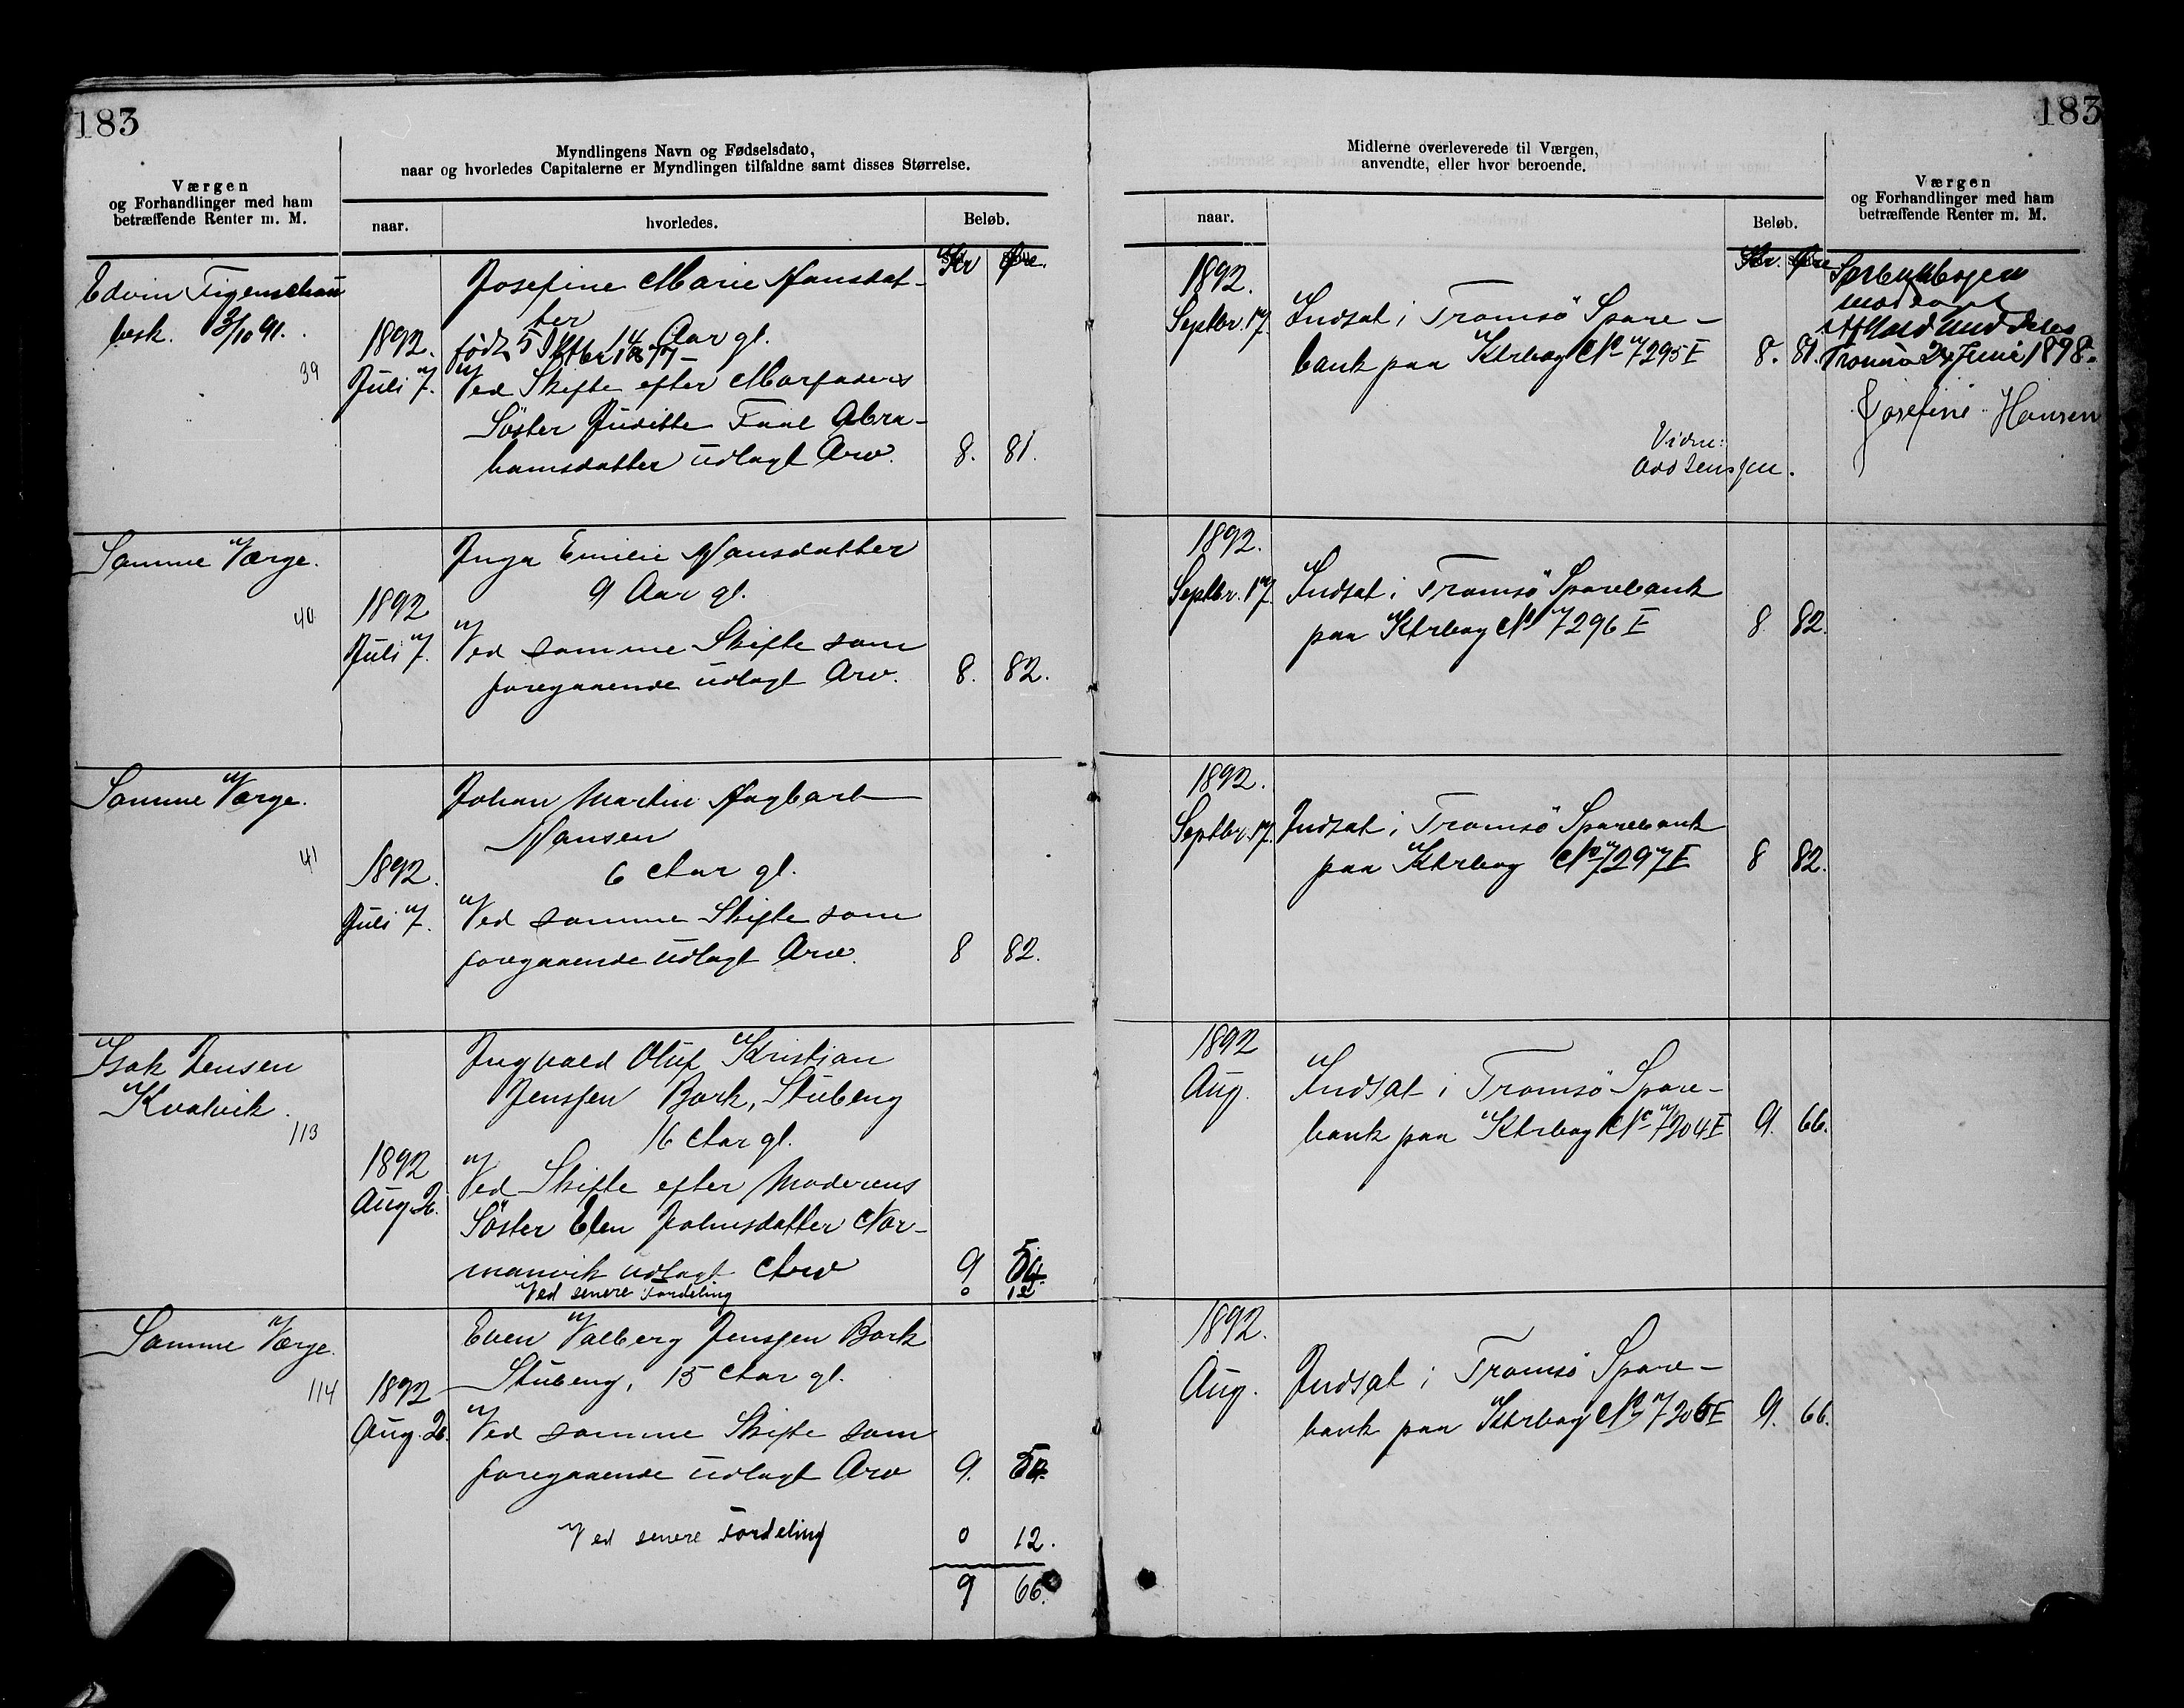 183
183
Værgen
og Forhandlinger med ham
betræffende Renter m. M.
Myndlingens Navn og Fødselsdato,
naar og hvorledes Capitalerne er Myndlingen tilfaldne samt disses Størrelse.
naar.
hvorledes.
Beløb.
Kr Øre.
Edvin Figenschau
besk. 3/10 91.
39
1892.
Juli 7.
Josefine Marie Hansdat-
ter
14 Aar gl.
født 5 1877
Ved Skifte efter Morfaders
Söster Juditte Abra-
hamsdatter udlagt Arv.
8. 81.
Samme Værge.
40
1892
Juli 7.
Inga Emilie Hansdatter
9 Aar gl.
Ved samme Skifte som
foregaaende udlagt Arv.
8. 82.
Samme Værge.
41
1892.
Juli 7.
Johan Martin Hagbart
Hansen
6 Aar gl.
Ved samme Skifte som
foregaaende udlagt Arv.
8 82.
Isak Jensen
Kvalvik.
113
1892
Aug 26.
Ingvald Oluf Kristian
Jenssen Bork, Stubeng
16 Aar gl.
Ved Skifte efter Moderens
Söster Elen Johnsdatter Nor-
manvik udlagt Arv
9 54.
Ved senere Fordeling
0 12
Samme Værge.
114
1892
Aug. 26.
Even Valberg Jenssen Bork
Stubeng, 15 Aar gl.
Ved samme Skifte som
foregaaende udlagt Arv
9. 54.
Ved senere Fordeling
0 12.
9 66.
Midlerne overleverede til Værgen,
anvendte, eller hvor beroende.
naar.
Beløb.
Kr. Øre
Værgen
og Forhandlinger med ham
betræffende Renter m. M.
1892.
Septbr. 17.
Indsat i Tromsö Spare-
bank paa Ktrbog No 7295 I
8. 81.
Vidne:
modtaget
Tromsö 24 Juni 1898.
Josefine Hansen
1892.
Septbr. 17.
Indsat i Tromsö Sparebank
paa Ktrbog No 7296 I
8. 82.
1892.
Septbr. 17.
Indsat i Tromsö Sparebank
paa Ktrbog No 7297 I
8 82.
1892
Aug.
Indsat i Tromsö Spare-
bank paa Ktrbog No 7204 I
9. 66.
1892.
Aug.
Indsat i Tromsö Spare-
bank paa Ktrbog No 7205 I
9. 66.